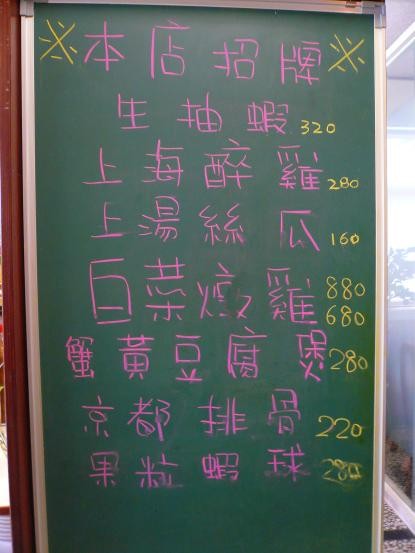 ※本店招牌※
生抽蝦 320
上海醉雞 280
上湯絲瓜 160
白菜燉雞 880 680
蟹黃豆腐煲 280
京都排骨 220
果粒蝦球 280